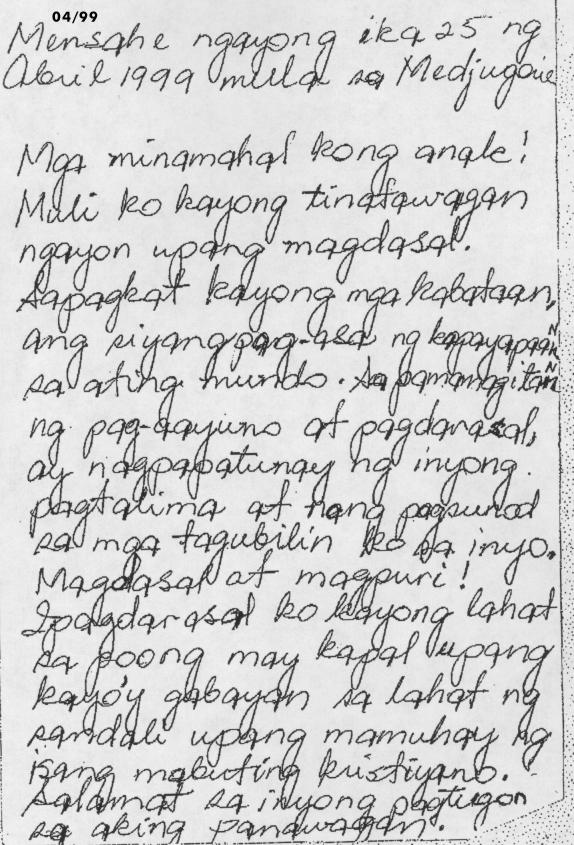 04/99
Mensahe ngayong ika 25 ng
Abril 1999 mula sa Medjugorie
Mga minamahal kong anak!
Muli ko kayong tinatawagan
ngayon upang magdasal.
Sapagkat kayong mga kabataan,
ang siyang pag-asa ng kapayapaan
sa ating mundo. Sa pamamagitan
ng pag-aayuno at pagdarasal,
ay nagpapatunay ng inyong
pagtalima at nang pagsunod
sa mga tagubilin ko sa inyo.
Magdasal at magpuri!
Ipagdarasal ko kayong lahat
sa poong may kapal upang
kayo'y gabayan sa lahat ng
sandali upang mamuhay ng
isang mabuting kristiyano.
Salamat sa inyong pagtugon
sa aking panawagan.